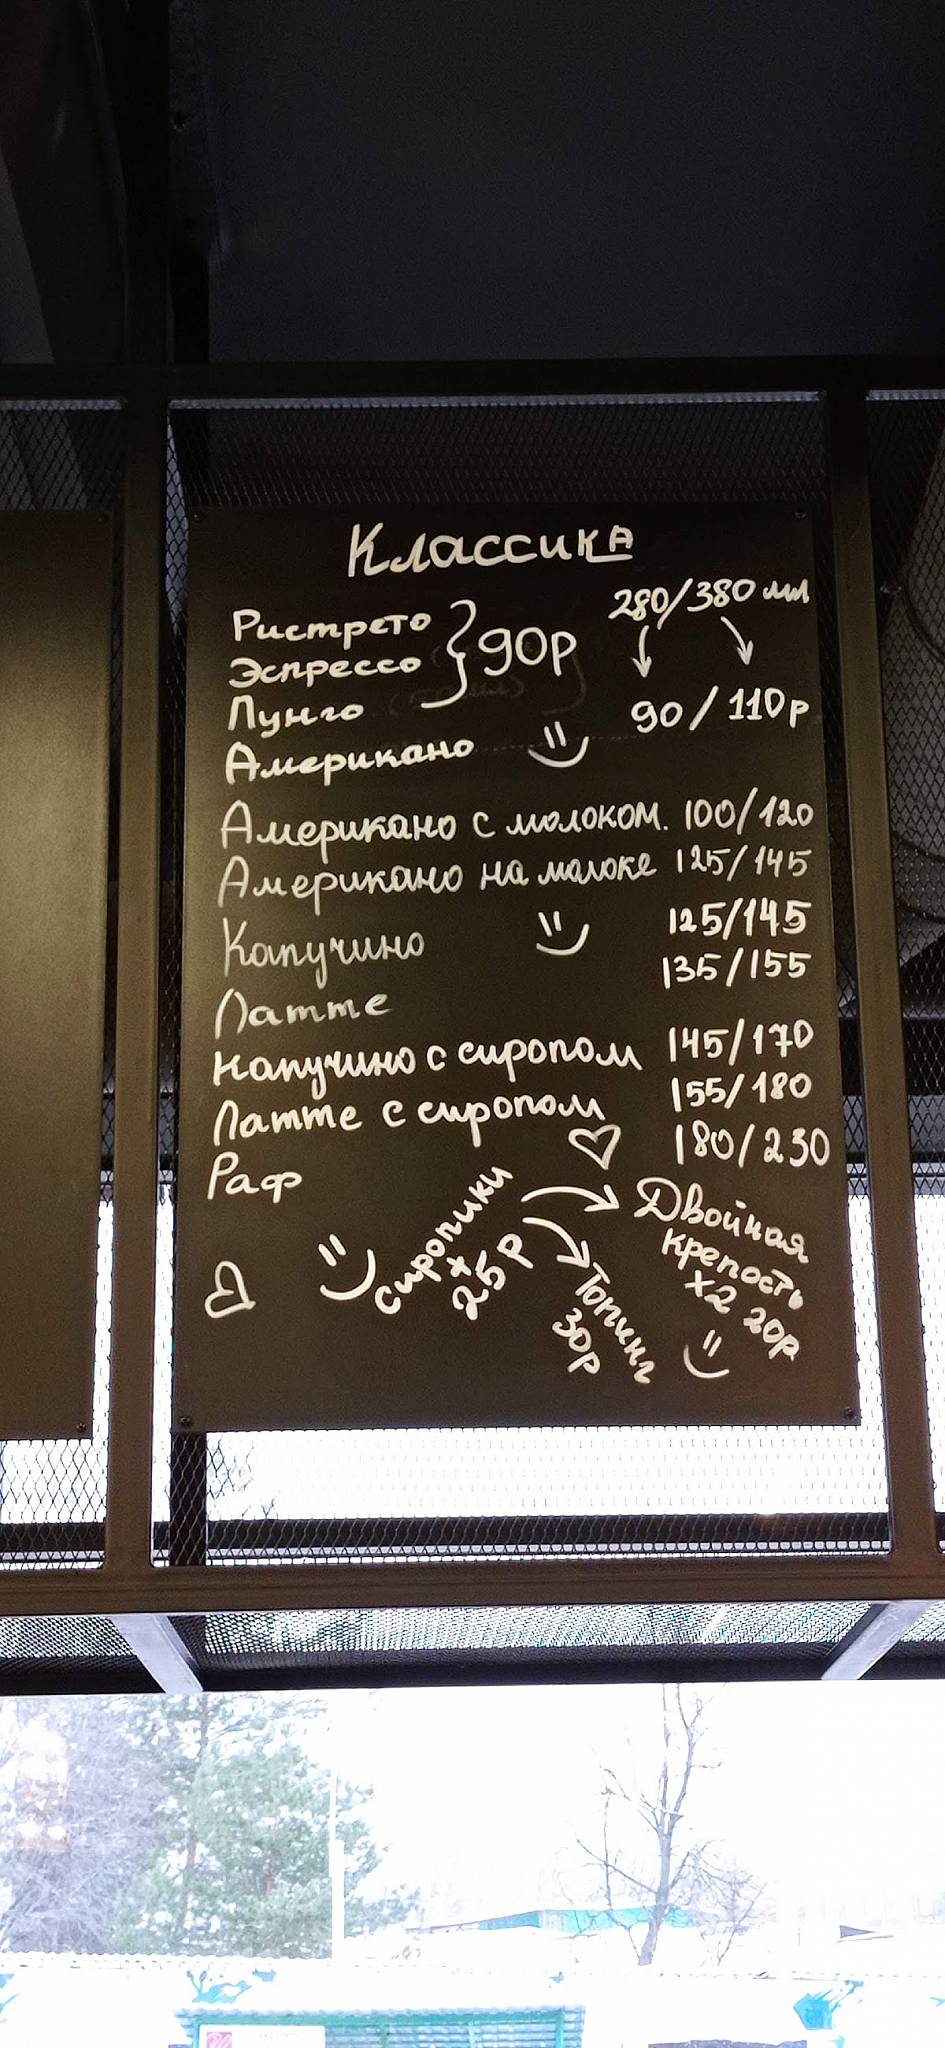 Классика
Ристрето
Эспрессо
Лунго
90р
280/380 мл
Американо 90/110р
Американо с молоком. 100/120
Американо на молоке 125/145
Капучино 125/145
Латте 135/155
Капучино с сиропом 145/170
Латте с сиропом 155/180
Раф 180/230
Сиропики
+
25р
Двойная
крепость
х2 20р
Топинг
30р